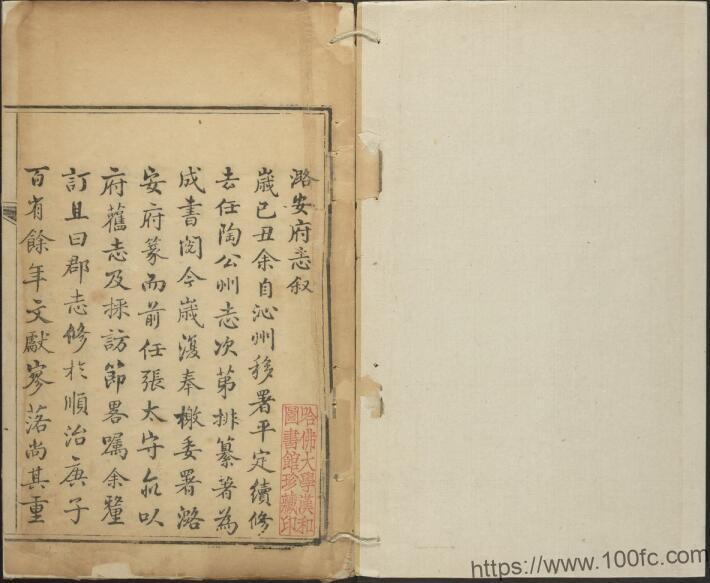 潞安府志叙
歲己丑余自沁州移署平定續修
去任陶公州志次第排纂著為
成書閱今歲復奉檄委署潞
安府篆而前任張太守亦以
府舊志及採訪節畧囑余釐
訂且曰郡志修於順治庚子
百有餘年文獻寥落尚其重
哈佛大學漢和
圖書館珍藏印
https://www.100fc.com